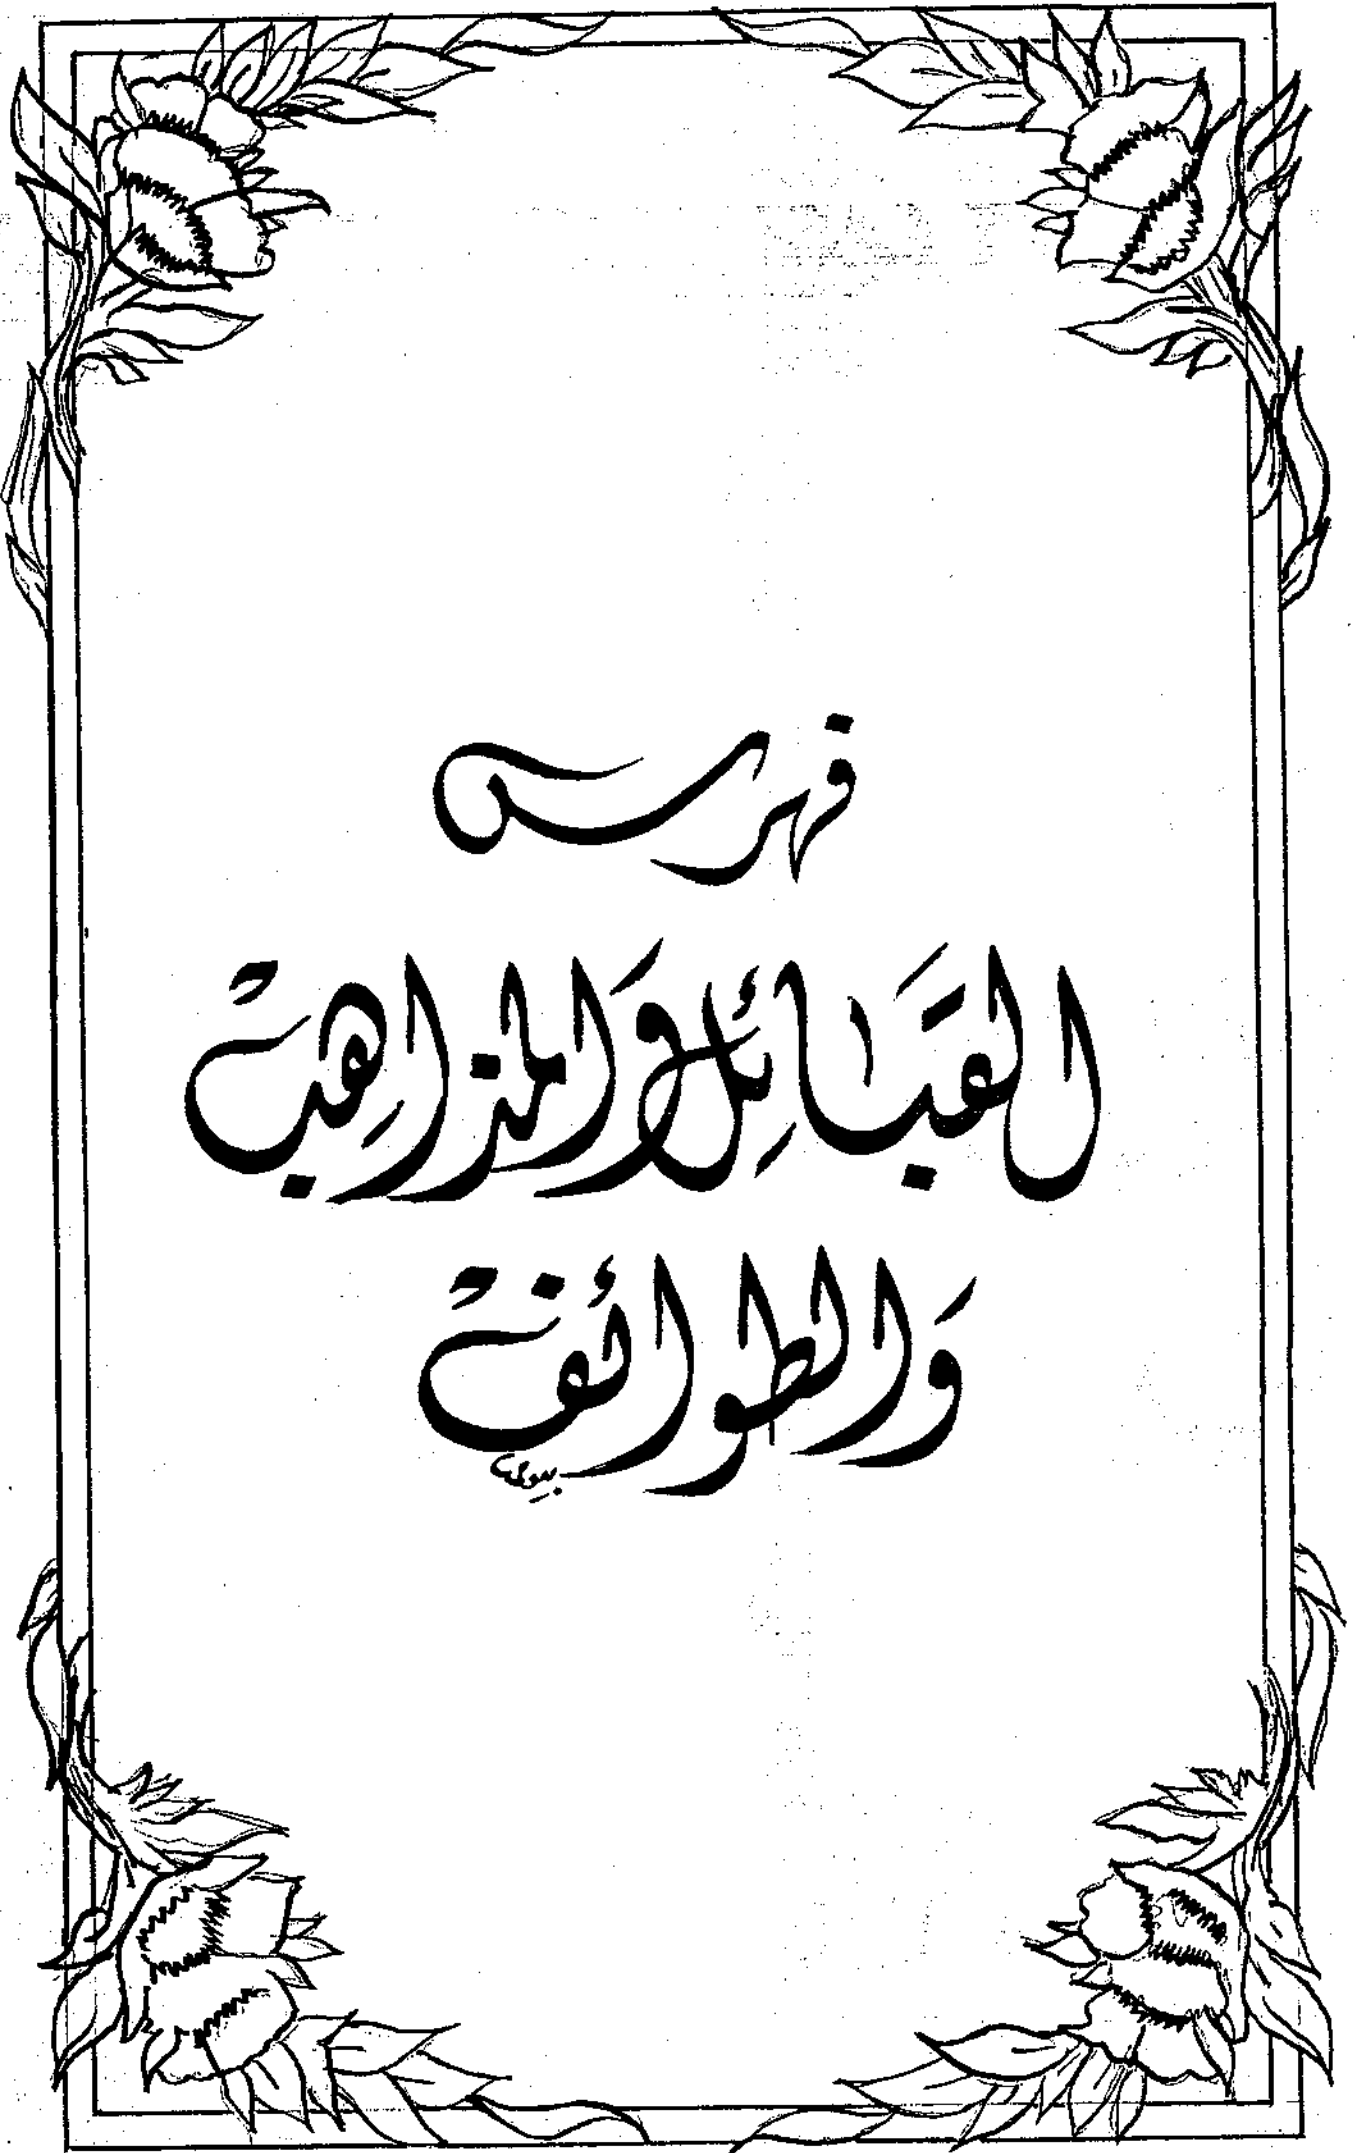 فهرس
القبَائِل وَالمذاهِب
وَالطوائف